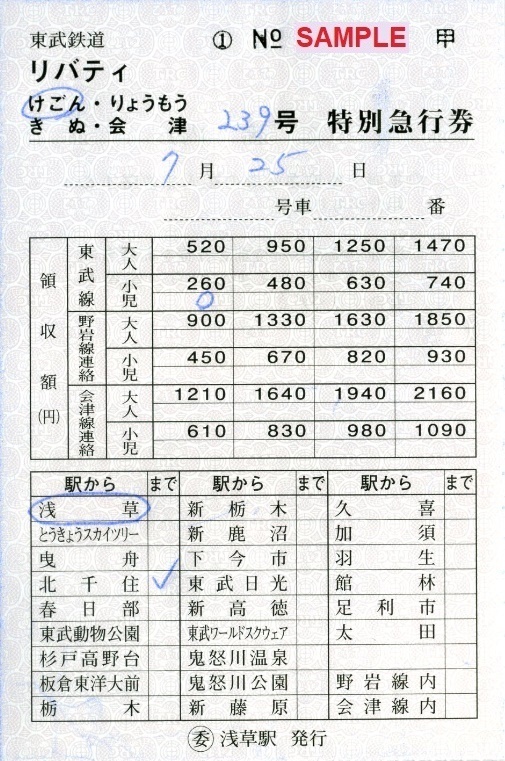 東武鉄道 ① No SAMPLE 甲
リバティ
けごん・りょうもう
きぬ・会津 239号 特別急行券
7月25日
号車 番
領収額(円) 東武線 大人 520 950 1250 1470
小児 260 480 630 740
0
野岩線連絡 大人 900 1330 1630 1850
小児 450 670 820 930
会津線連絡 大人 1210 1640 1940 2160
小児 610 830 980 1090
駅から まで 駅から まで 駅から まで
浅草 新栃木 久喜
とうきょうスカイツリー 新鹿沼 加須
曳舟 下今市 羽生
北千住 ✓ 東武日光 館林
春日部 新高徳 足利市
東武動物公園 東武ワールドスクウェア 太田
杉戸高野台 鬼怒川温泉
板倉東洋大前 鬼怒川公園 野岩線内
栃木 新藤原 会津線内
㊙委 浅草駅 発行